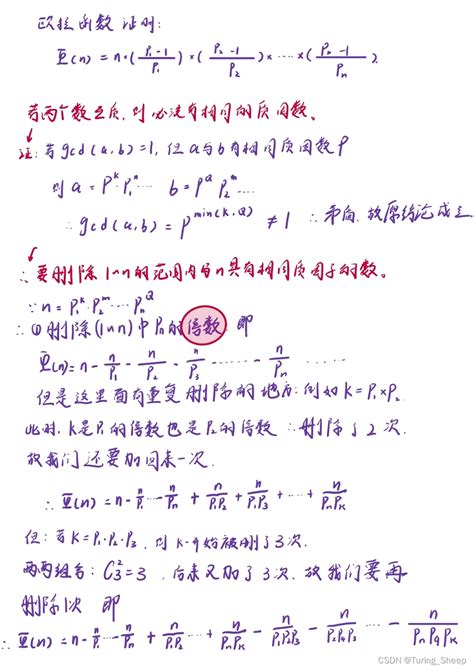 欧拉函数 证明:
Φ(n) = n·(P₁-1/P₁)×(P₂-1/P₂)×…×(Pₙ-1/Pₙ)
若两个数互质,则必没有相同的质因数。
注:若gcd(a,b)=1,但a与b有相同质因数P
则 a=P^k·P₁ⁿ… b=P^Q P₂^m…
∴gcd(a,b)=P^min(k,Q) ≠1 ∴矛盾,故原结论成立
∴要删除1~n的范围内与n具有相同质因子的数。
∵n=P₁^k·P₂^m…Pₙ^Q
∴①删除(1~n)中Pᵢ的倍数 即
Φ(n)=n-n/P₁-n/P₂-n/P₃……-n/Pₙ……
但是这里面有重复删除的地方,例如K=P₁×P₂
此时,K是P₁的倍数也是P₂的倍数 ∴删除了2次.
故我们还要加回来一次.
∴Φ(n)=n-n/P₁…-n/Pₙ+n/P₁P₂+n/P₁P₃+…+n/PₙPₖ
但:若K=P₁·P₂·P₃,则K一开始被删了3次.
两两组合:C₃²=3,后来又加了3次,故我们要再
删除1次 即
∴Φ(n)=n-n/P₁…-n/Pₙ+n/P₁P₂…+n/PₙPₖ-n/P₁P₂P₃-n/P₁P₂P₄…-n/PₙP_qPₖ
CSDN @Turing_Sheep